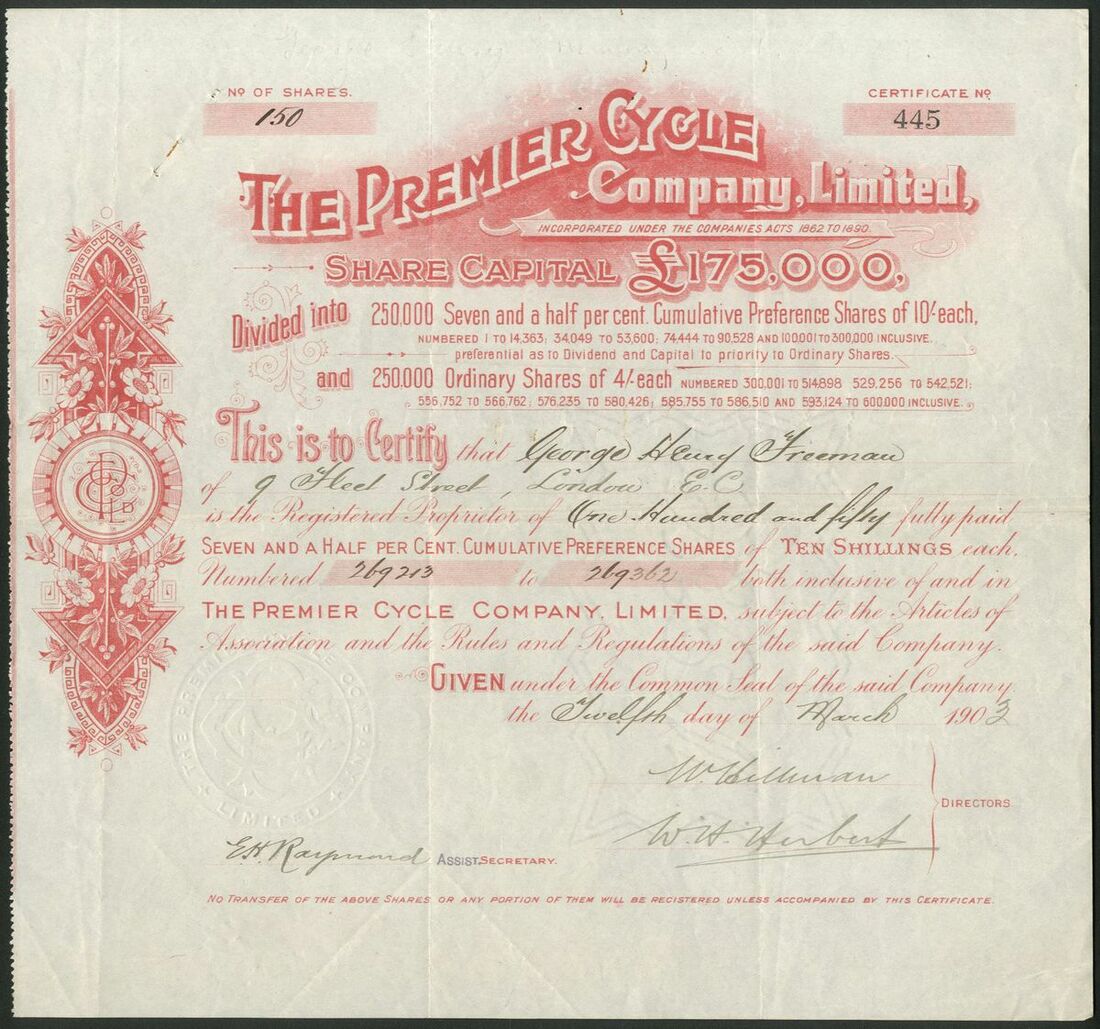 Nº OF SHARES.
150
CERTIFICATE Nº
445
THE PREMIER CYCLE
Company, Limited,
INCORPORATED UNDER THE COMPANIES ACTS 1862 TO 1890.
SHARE CAPITAL £175,000,
Divided into 250,000 Seven and a half per cent. Cumulative Preference Shares of 10/- each,
NUMBERED 1 TO 14,363; 34,049 TO 53,600; 74,444 TO 90,528 AND 100,001 TO 300,000 INCLUSIVE.
preferential as to Dividend and Capital to priority to Ordinary Shares.
and 250,000 Ordinary Shares of 4/- each NUMBERED 300,001 TO 514,898 529,256 TO 542,521;
556,752 TO 566,762; 576,235 TO 580,426; 585,755 TO 586,510 AND 593,124 TO 600,000 INCLUSIVE.
This is to Certify that George Henry Freeman
of 9 Fleet Street, London E.C.
is the Registered Proprietor of One Hundred and fifty fully paid
SEVEN AND A HALF PER CENT. CUMULATIVE PREFERENCE SHARES of TEN SHILLINGS each,
Numbered 269213 to 269362 both inclusive of and in
THE PREMIER CYCLE COMPANY, LIMITED, subject to the Articles of
Association and the Rules and Regulations of the said Company.
GIVEN under the Common Seal of the said Company
the Twelfth day of March 1903
W. Hillman
W. H. Herbert
DIRECTORS
E H Raymond ASSIST. SECRETARY.
THE PREMIER CYCLE COMPANY
LIMITED
NO TRANSFER OF THE ABOVE SHARES OR ANY PORTION OF THEM WILL BE REGISTERED UNLESS ACCOMPANIED BY THIS CERTIFICATE.